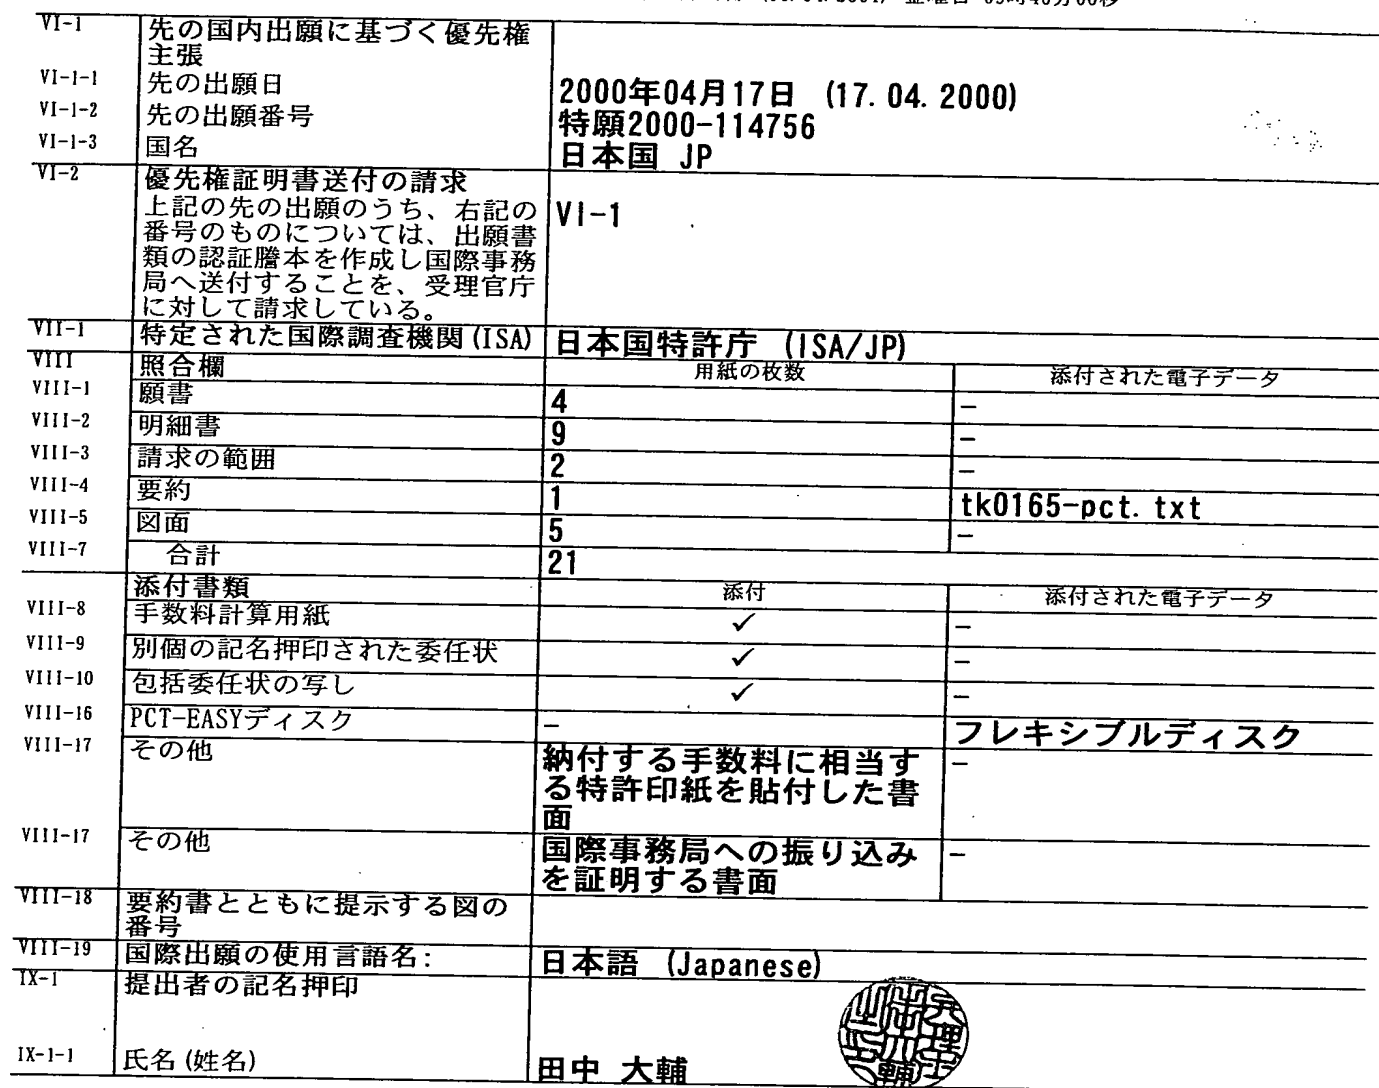 VI-1 先の国内出願に基づく優先権
主張
VI-1-1 先の出願日 2000年04月17日 (17. 04. 2000)
VI-1-2 先の出願番号 特願2000-114756
VI-1-3 国名 日本国 JP
VI-2 優先権証明書送付の請求
上記の先の出願のうち、右記の VI-1
番号のものについては、出願書
類の認証謄本を作成し国際事務
局へ送付することを、受理官庁
に対して請求している。
VII-1 特定された国際調査機関(ISA) 日本国特許庁 (ISA/JP)
VIII 照合欄 用紙の枚数 添付された電子データ
VIII-1 願書 4 -
VIII-2 明細書 9 -
VIII-3 請求の範囲 2 -
VIII-4 要約 1 tk0165-pct. txt
VIII-5 図面 5 -
VIII-7 合計 21
添付書類 添付 添付された電子データ
VIII-8 手数料計算用紙 ✓ -
VIII-9 別個の記名押印された委任状 ✓ -
VIII-10 包括委任状の写し ✓ -
VIII-16 PCT-EASYディスク - フレキシブルディスク
VIII-17 その他 納付する手数料に相当す -
る特許印紙を貼付した書
面
VIII-17 その他 国際事務局への振り込み -
を証明する書面
VIII-18 要約書とともに提示する図の
番号
VIII-19 国際出願の使用言語名: 日本語 (Japanese)
IX-1 提出者の記名押印
IX-1-1 氏名(姓名) 田中 大輔